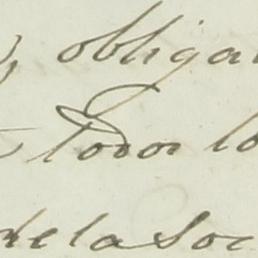 obliga
todos lo
de la Soc